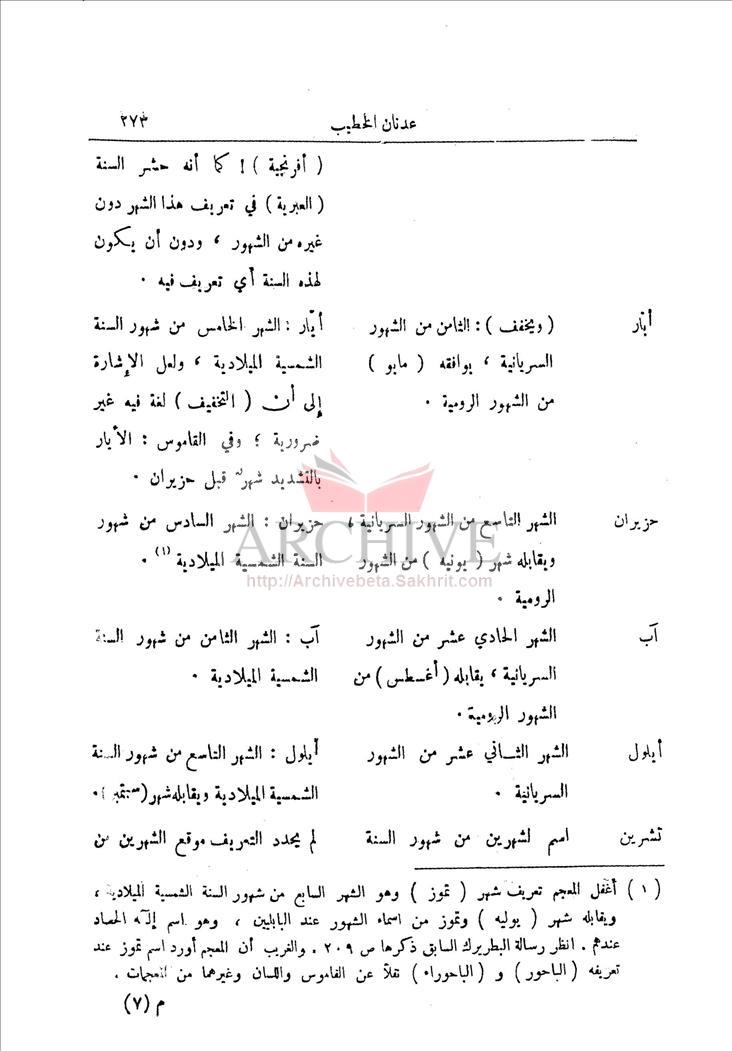 عدنان الخطيب ٢٧٣
( أفرنجية ) ! كما أنه حشر السنة
( العبرية ) في تعريف هذا الشهر دون
غيره من الشهور ، ودون أن يكون
لهذه السنة أي تعريف فيه .
أيّار ( ويخفف ) : الثامن من الشهور أيّار : الشهر الخامس من شهور السنة
السريانية ، يوافقه ( مايو ) الشمسية الميلادية ، ولعل الإشارة
من الشهور الرومية . إلى أن ( التخفيف ) لغة فيه غير
ضرورية ؛ وفي القاموس : الأيار
بالتشديد شهر قبل حزيران .
حزيران الشهر التاسع من الشهور السريانية ، حزيران : الشهر السادس من شهور
ويقابله شهر ( يونيه ) من الشهور السنة الشمسية الميلادية (١) .
الرومية .
ARCHIVE
http://Archivebeta.Sakhrit.com
آب الشهر الحادي عشر من الشهور آب : الشهر الثامن من شهور السنة
السريانية ، يقابله ( أغسطس ) من الشمسية الميلادية .
الشهور الرومية .
أيلول الشهر الثاني عشر من الشهور أيلول : الشهر التاسع من شهور السنة
السريانية . الشمسية الميلادية ويقابله شهر ( سبتمبر ) .
تشرين اسم لشهرين من شهور السنة لم يحدد التعريف موقع الشهرين من
( ١ ) أغفل المعجم تعريف شهر ( تموز ) وهو الشهر السابع من شهور السنة الشمسية الميلادية ،
ويقابله شهر ( يوليه ) وتموز من اسماء الشهور عند البابليين ، وهو اسم إله الحصاد
عندهم . انظر رسالة البطريرك السابق ذكرها ص ٢٠٩ . والغريب أن المعجم أورد اسم تموز عند
تعريفه ( الباحور ) و ( الباحوراء ) نقلاً عن القاموس واللسان وغيرهما من المعجمات .
م (٧)